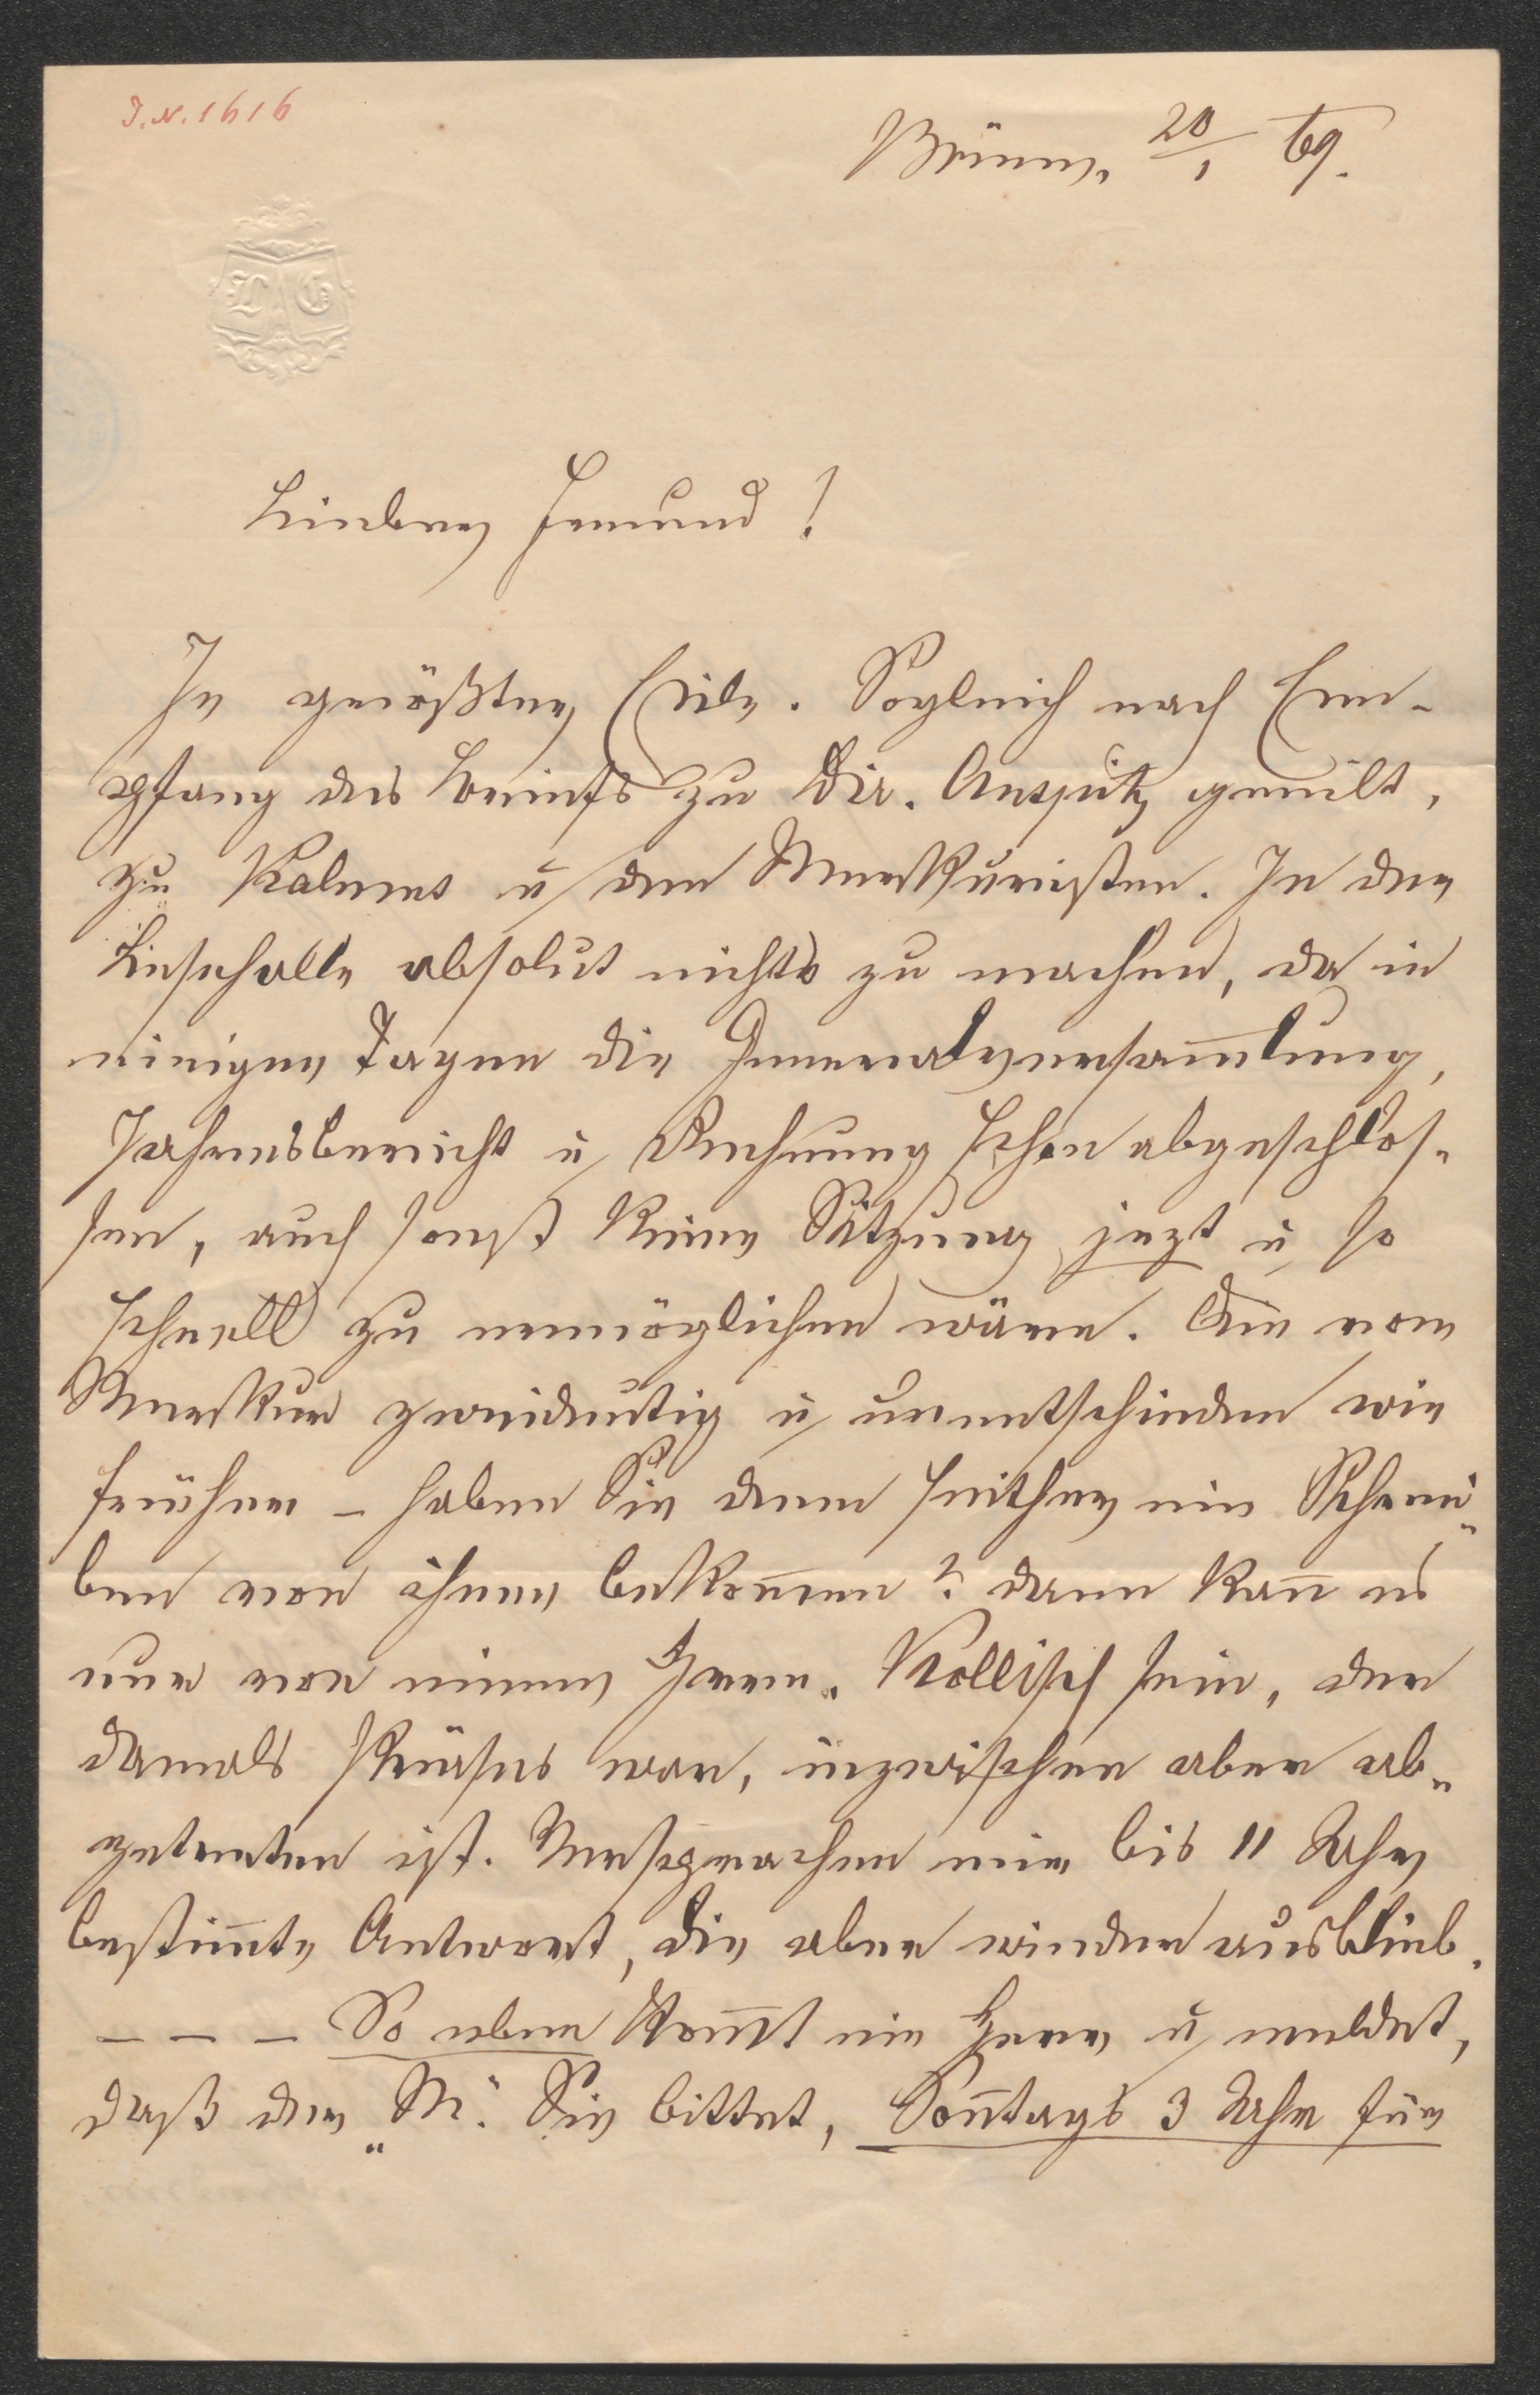 J. N. 1616
Brünn, 20/1 69.
L G
Lieber Freund!
In größter Eile. Sogleich nach Em-
pfang des Briefs zu Dir. Auspitz geeilt,
zu Kalmus u den Merkuristen. In der
Lesehalle absolut nichts zu machen, da in
einigen Tagen die Generalversam̅lung,
Jahresbericht u Rechnung schon abgeschlos-
sen, auch sonst keine Sitzung jezt u so
schnell zu ermöglichen wäre. Die vom
Merkur zweideutig u unentschieden wie
früher – haben Sie denn seither ein Schrei-
ben von ihnen bekom̅en? dann kan̅ es
nur von einem Herrn Kollisch sein, der
damals Präses war, inzwischen aber ab-
getreten ist. Versprachen mir bis 11 Uhr
bestim̅te Antwort, die aber wieder ausblieb.
– – – So eben kom̅t ein Herr u meldet,
daß der „M." Sie bittet, Son̅tags 3 Uhr für